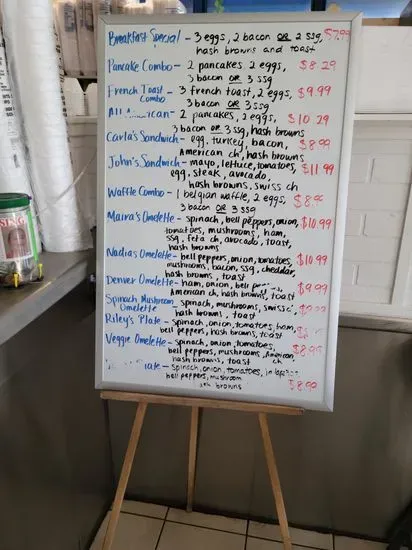 Breakfast Special - 3 eggs, 2 bacon OR 2 ssg, $7.99
hash browns and toast
Pancake Combo - 2 pancakes 2 eggs, $8.29
3 bacon OR 3 ssg
French Toast - 3 french toast, 2 eggs, $9.99
Combo 3 bacon OR 3 ssg
- 2 pancakes, 2 eggs, $10.29
3 bacon OR 3 ssg, hash browns
Carla's Sandwich - egg, turkey, bacon, $8.99
American ch, hash browns
John's Sandwich - mayo, lettuce, tomatoes, $11.99
egg, steak, avocado,
hash browns, swiss ch
Waffle Combo - 1 belgian waffle, 2 eggs,
3 bacon OR 3 ssg
Maira's Omelette - spinach, bell peppers, onion, $10.99
tomatoes, mushrooms, ham,
ssg, feta ch, avocado, toast,
hash browns
Nadia's Omelette - bell peppers, onion, tomatoes, $10.99
mushrooms, bacon, ssg, cheddar,
hash browns, toast
Denver Omelette - ham, onion, bell $9.99
American ch, hash browns, toast
Spinach Mushroom - spinach, mushrooms, swiss
Omelette hash browns, toast
Riley's Plate - spinach, onion, tomatoes, ham,
bell peppers, hash browns, toast
Veggie Omelette - spinach, onion, tomatoes, $8.99
bell peppers, mushrooms, American
hash browns, toast ch
- spinach, onion, tomatoes,
bell peppers, mushroom $8.99
browns